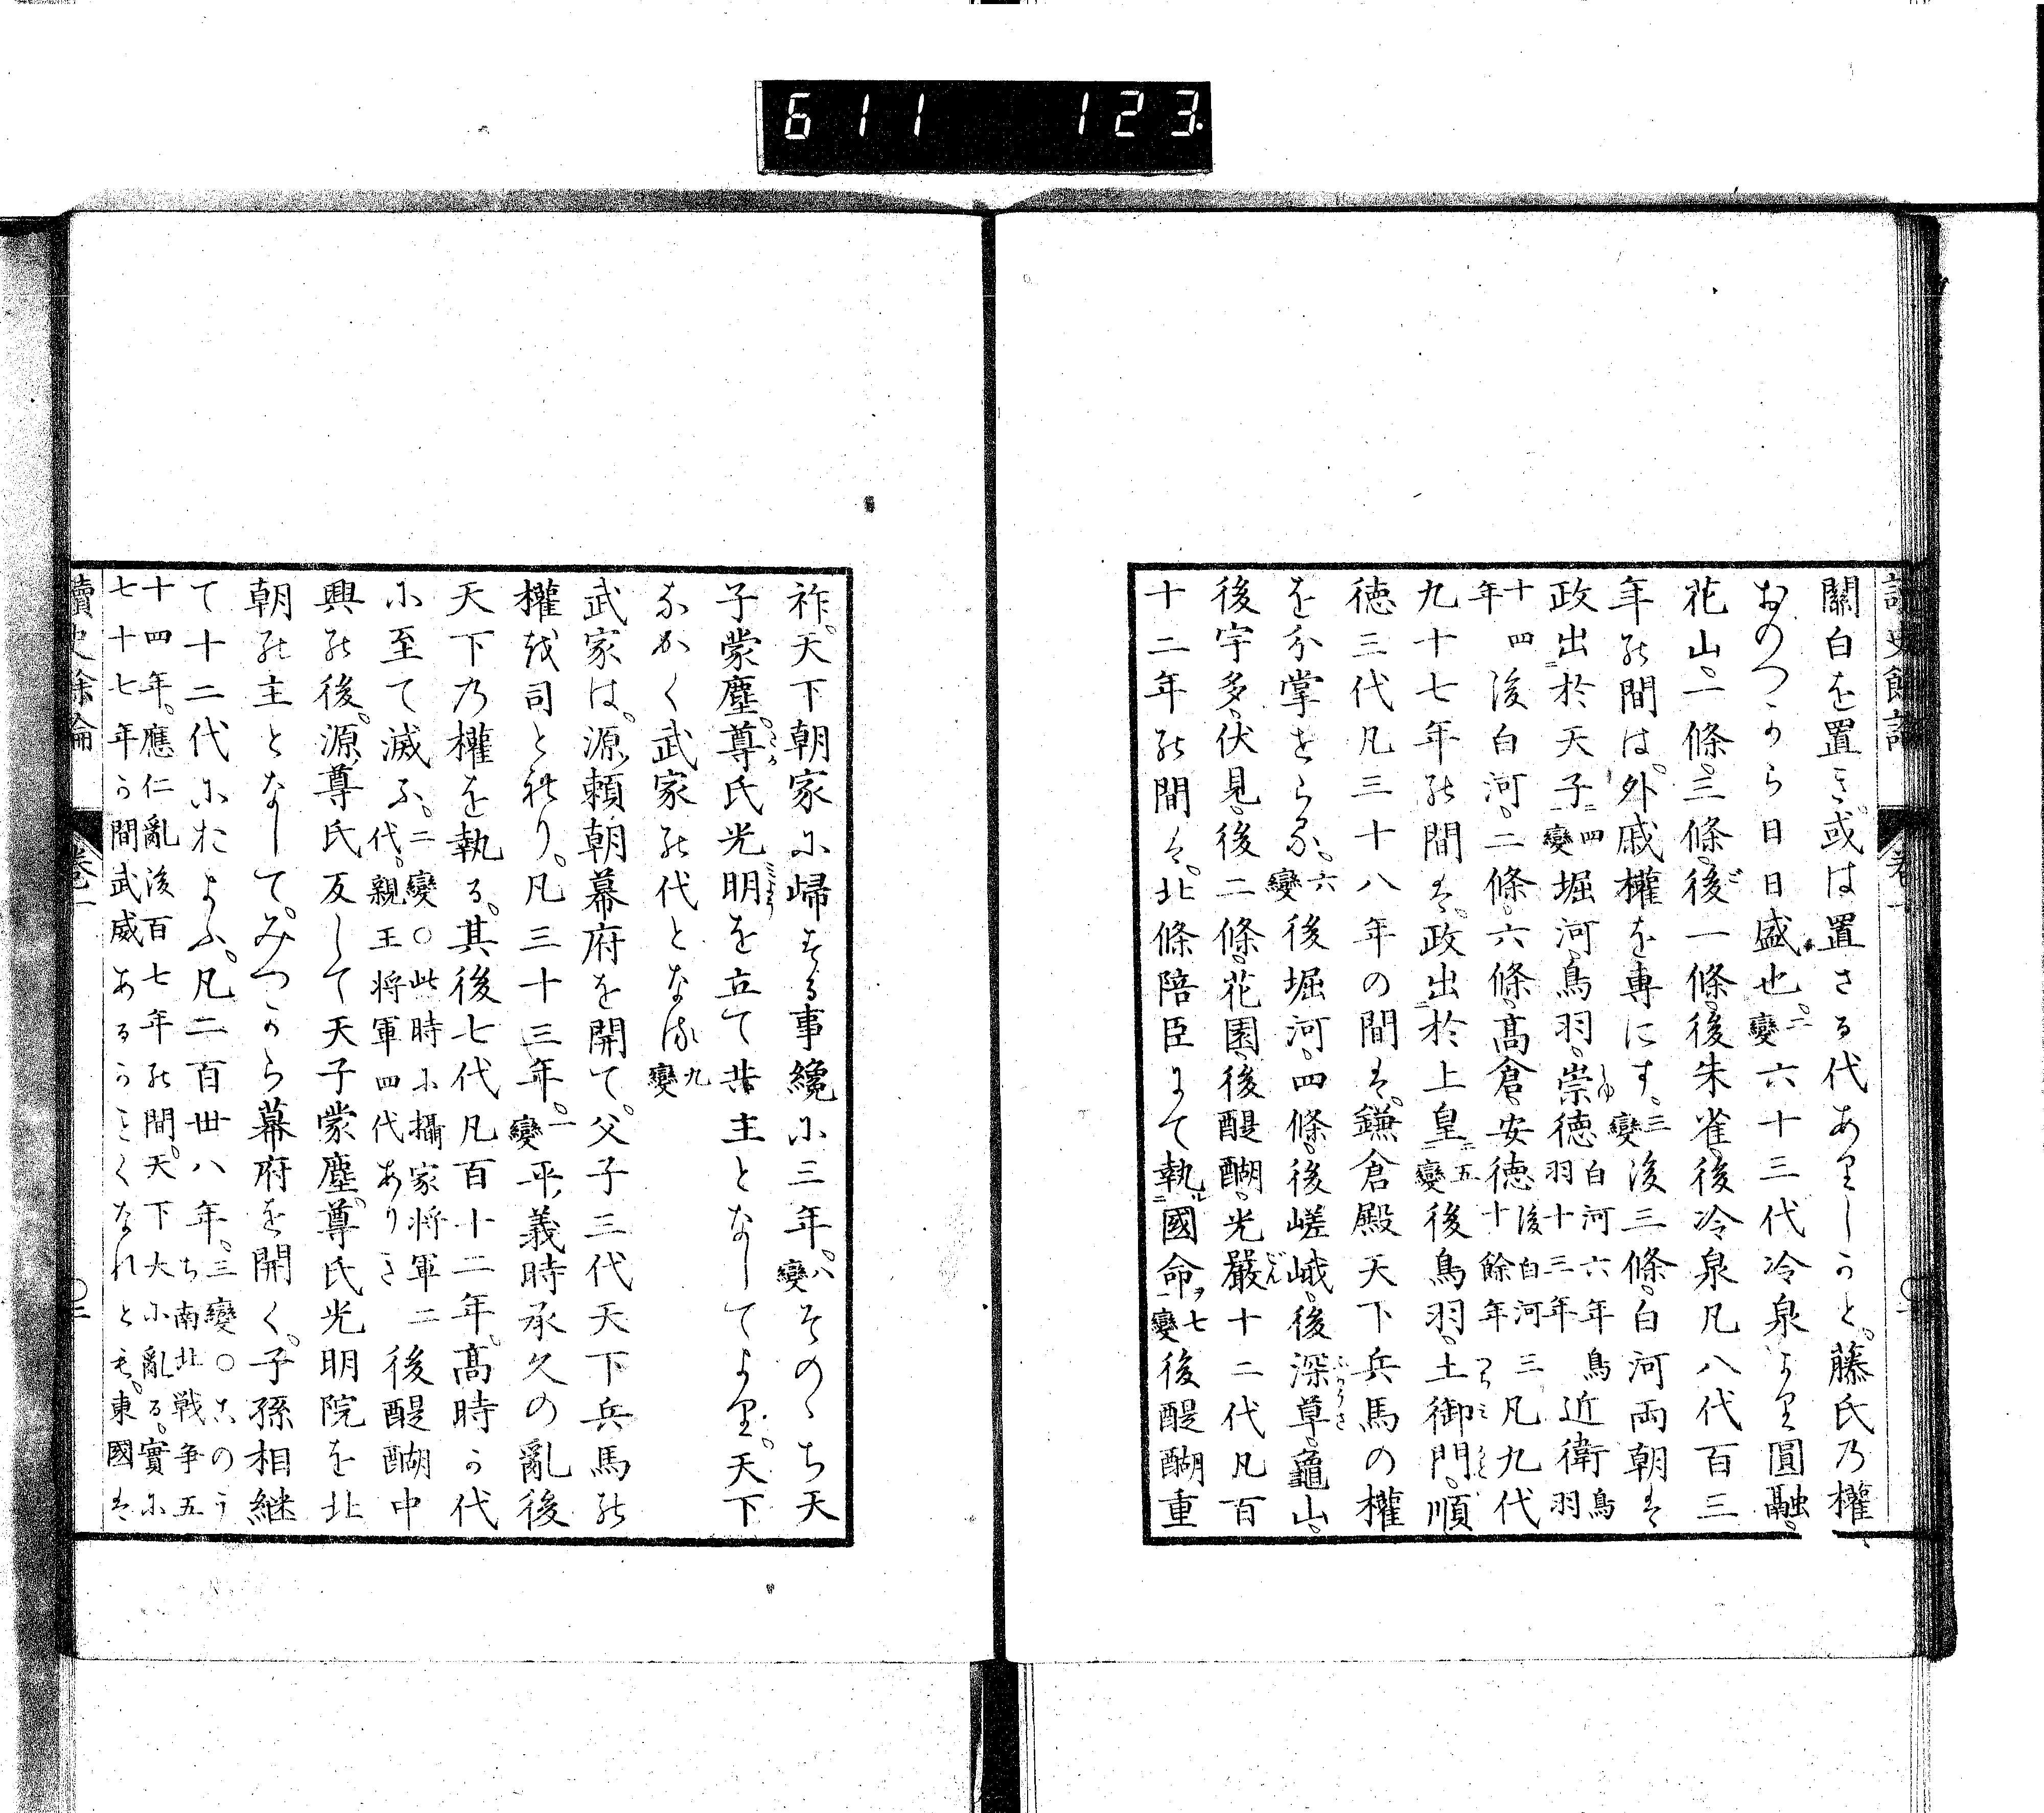 611 123
讀史餘論 卷一 〇二
關白を置き。或は置さる代ありしかと。藤氏乃權
おのつから日日盛也。二變 六十三代冷泉より圓融。
花山。一條。三條。後一條。後朱雀。後冷泉凡八代百三
年の間は。外戚權を專にす。三變 後三條。白河両朝は
政出於天子 四變 堀河。鳥羽。崇徳 白河六年鳥羽十三年 近衛 鳥羽
十四年 後白河。二條。六條。高倉。安徳 後白河三十餘年 凡九代
九十七年の間は。政出於上皇 五變 後鳥羽。土御門。順
徳三代凡三十八年の間は。鎌倉殿天下兵馬の權
を分掌せらる。六變 後堀河。四條。後嵯峨。後深草。龜山。
後宇多。伏見。後二條。花園。後醍醐。光嚴十二代凡百
十二年の間は。北條陪臣にて執國命 七變 後醍醐重
祚。天下朝家に歸する事纔に三年。八變 そのゝち天
子蒙塵。尊氏光明を立て共主となしてより。天下
ながく武家の代となる 九變
武家は。源頼朝幕府を開て。父子三代天下兵馬の
權を司とれり。凡三十三年。一變 平義時承久の亂後
天下乃權を執る。其後七代凡百十二年。高時か代
に至て滅ふ。二變〇此時に攝家将軍二代。親王将軍四代ありき 後醍醐中
興の後。源尊氏反して天子蒙塵。尊氏光明院を北
朝の主となして。みつから幕府を開く。子孫相継
て十二代におよふ。凡二百卅八年。三變〇このうち南北戦争五
十四年。應仁亂後百七年の間。天下大に亂る。實に
七十七年か間武威あるかことくなれとも。東國は
讀史餘論 卷一 〇二